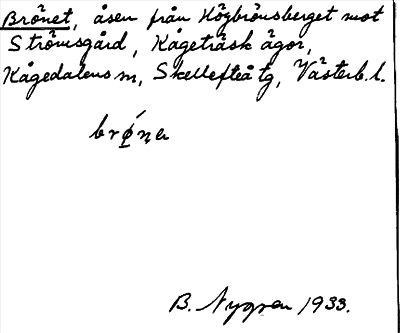 Brönet, åsen från Högbrönsberget mot
Strömsgård, Kågeträsk ägor,
Kågedalens m, Skellefteå tg, Västerb. l.
brǿn̥ɐ
B. Nygren 1933.